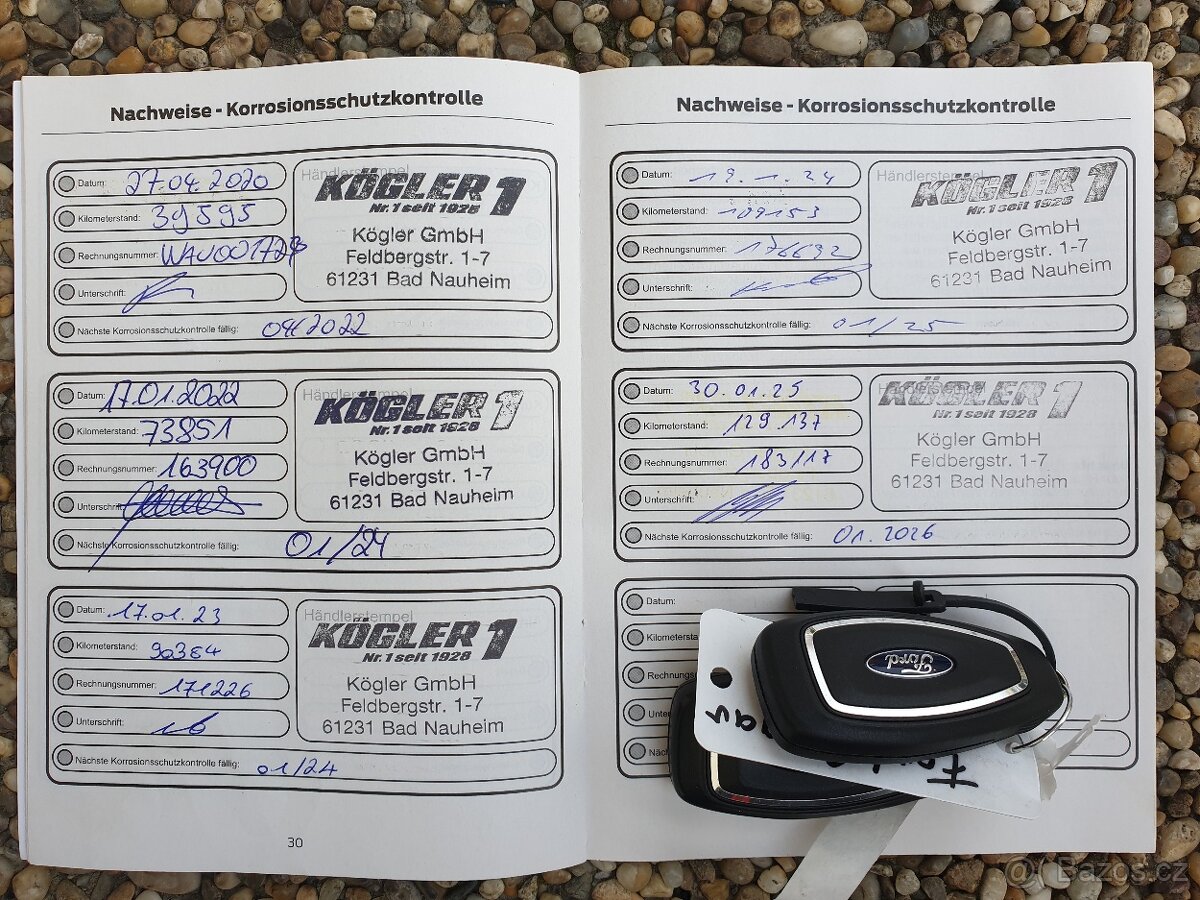 Nachweise - Korrosionsschutzkontrolle
Datum: 27.04.2020
Kilometerstand: 39595
Rechnungsnummer:
Unterschrift:
Nächste Korrosionsschutzkontrolle fällig: 04/2022
Händlerstempel
KÖGLER 1
Nr. 1 seit 1928
Kögler GmbH
Feldbergstr. 1-7
61231 Bad Nauheim
Datum: 17.01.2022
Kilometerstand: 73851
Rechnungsnummer: 163900
Unterschrift:
Nächste Korrosionsschutzkontrolle fällig: 01/24
Händlerstempel
KÖGLER 1
Nr. 1 seit 1928
Kögler GmbH
Feldbergstr. 1-7
61231 Bad Nauheim
Datum: 17.01.23
Kilometerstand: 90364
Rechnungsnummer: 171226
Unterschrift:
Nächste Korrosionsschutzkontrolle fällig: 01/24
Händlerstempel
KÖGLER 1
Nr. 1 seit 1928
Kögler GmbH
Feldbergstr. 1-7
61231 Bad Nauheim
30
Nachweise - Korrosionsschutzkontrolle
Datum: 19.1.24
Kilometerstand: 109153
Rechnungsnummer: 176692
Unterschrift:
Nächste Korrosionsschutzkontrolle fällig: 01/25
Händlerstempel
KÖGLER 1
Nr. 1 seit 1928
Kögler GmbH
Feldbergstr. 1-7
61231 Bad Nauheim
Datum: 30.01.25
Kilometerstand: 129.137
Rechnungsnummer: 183117
Unterschrift:
Nächste Korrosionsschutzkontrolle fällig: 01.2026
KÖGLER 1
Nr. 1 seit 1928
Kögler GmbH
Feldbergstr. 1-7
61231 Bad Nauheim
Datum:
Kilometersta
Rechnung
Unter
Näch
Ford
Bazos.cz